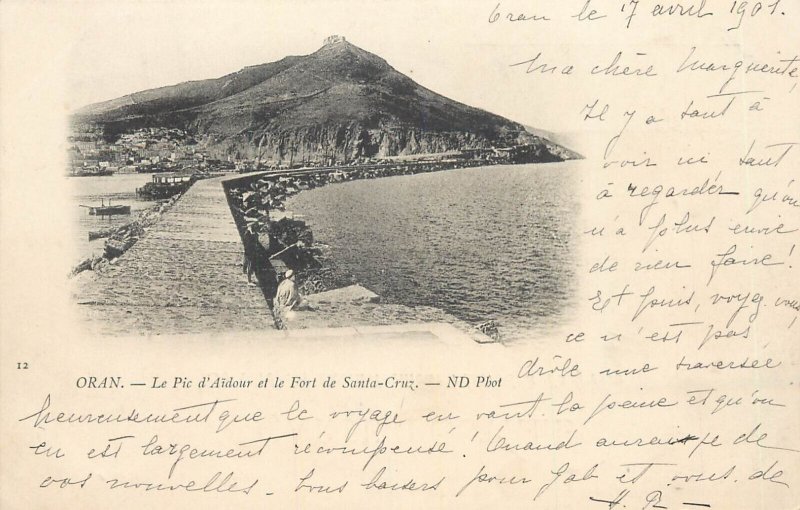 Oran le 17 avril 1901.
Ma chère Marguerite,
Il y a tant à
voir ici tant
à regarder qu'on
n'a plus envie
de rien faire!
Et puis, voyez vous
ce n'est pas
drôle une traversée
12
ORAN. — Le Pic d'Aïdour et le Fort de Santa-Cruz. — ND Phot
heureusement que le voyage en vaut la peine et qu'on
en est largement récompensé! Quand aurai-je de
vos nouvelles - bons baisers pour Gab et vous. de
H. R —